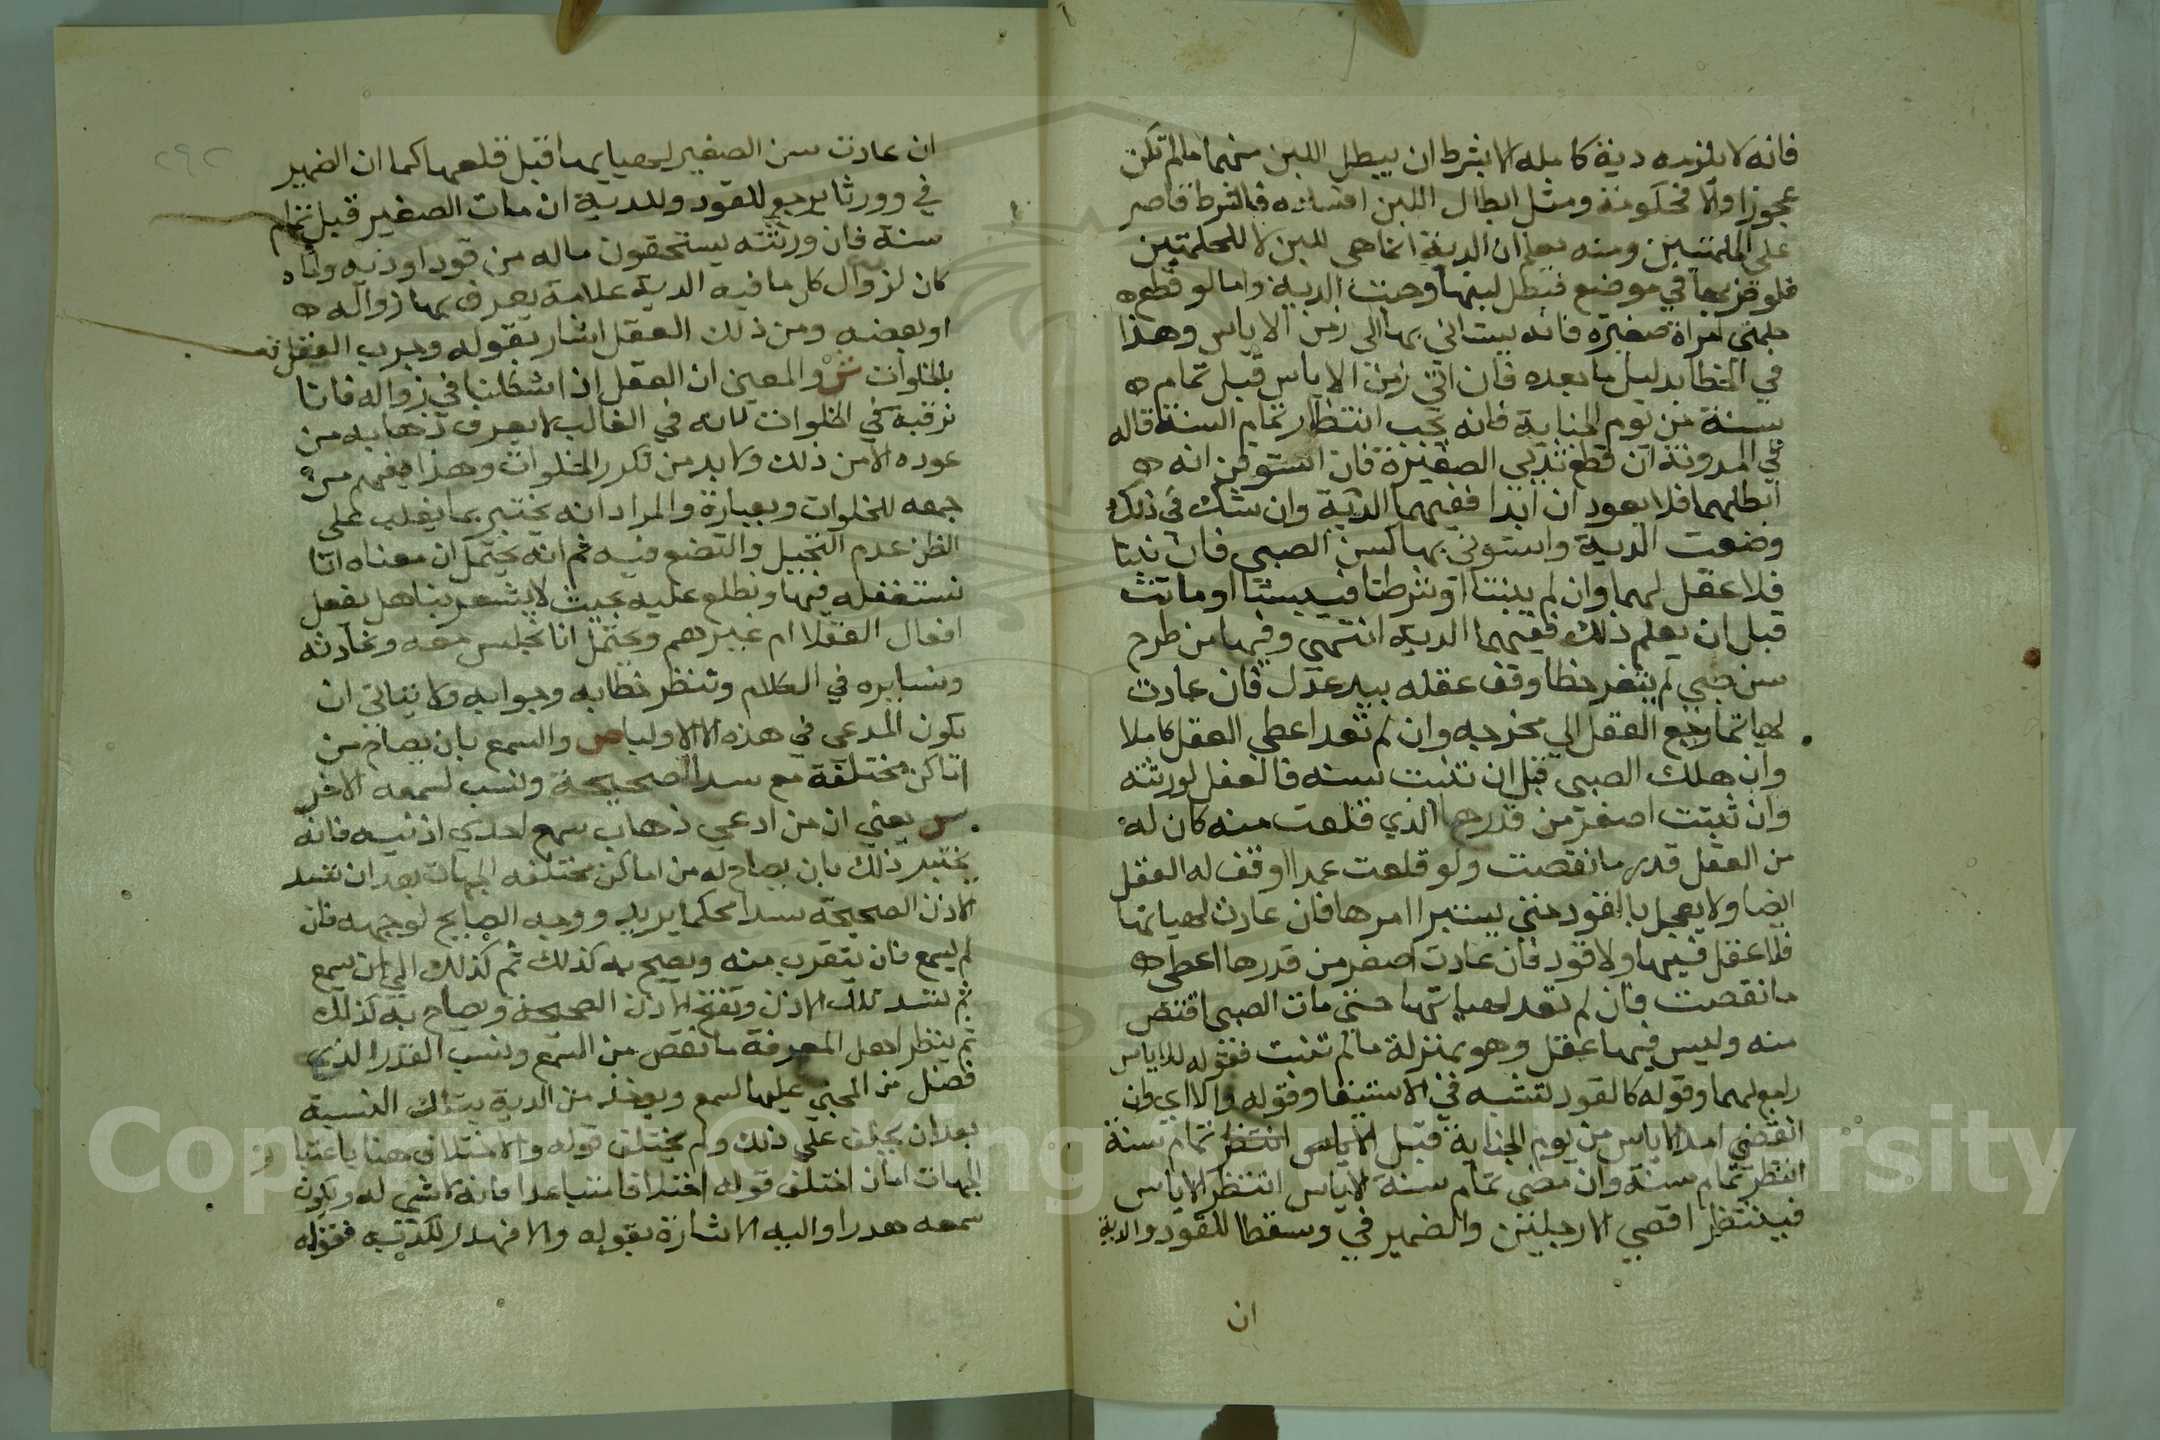 فانه لا يلزمه دية كاملة الا بشرط ان يبطل اللبن منهما ما لم تكن
عجوزا والا فحكومة ومثل ابطال اللبن افساده فالشرط قاصر
على الحلمتين ومنه يعلم ان الدية انما هى للبن لا للحلمتين
فلو ضربها في موضع فبطل لبنها وجبت الدية واما لو قطع
حلمتي امراة صغيرة فانه يستاني بها الى زمن الاياس وهذا
في الخطا بدليل ما بعده فان اتى زمن الاياس قبل تمام
سنة من يوم الجناية فانه يجب انتظار تمام السنة قاله
في المدونة ان قطع ثديي الصغيرة فان استوقن انه
ابطلهما فلا يعود ان ابدا ففيهما الدية وان شك في ذلك
وضعت الدية واستوني بها كسن الصبي فان نبتا
فلا عقل لهما وان لم ينبتا او شرطتا فيبستا او ماتت
قبل ان يعلم ذلك ففيهما الدية انتهى وفيها من طرح
سن صبي لم يثغر خطا وقف عقله بيد عدل فان عادت
لهياتها رجع العقل الي مخرجه وان لم تعد اعطي العقل كاملا
وان هلك الصبي قبل ان تنبت سنه فالعقل لورثته
وان نبتت اصغر من قدرها الذي قلعت منه كان له
من العقل قدر ما نقصت ولو قلعت عمدا اوقف له العقل
ايضا ولا يعجل بالقود حتى يستبرا امرها فان عادت لهياتها
فلا عقل فيها ولا قود فان عادت اصغر من قدرها اعطى
ما نقصت فان لم تعد لهياتها حتى مات الصبي اقتص
منه وليس فيها عقل وهو بمنزلة ما لم تنبت فقوله للاياس
راجع لهما وقوله كالقود لتشبه في الاستيفا وقوله والا اي وان
انقضي امد الاياس من يوم الجناية قبل الاياس انتظر تمام سنة
انتظر تمام سنة وان مضى تمام سنة الاياس انتظر الاياس
فينتظر اقصي الاجلين والضمير في وسقطا للقود والدية
ان
٢٩٢
ان عادت سن الصغير لهياتها قبل قلعها كما ان الضمير
في وورثا يرجع للقود وللدية ان مات الصغير قبل تمام
سنة فان ورثته يستحقون ماله من قود او دية ولما
كان لزوال كل ما فيه الدية علامة يعرف بها زواله
او بعضه ومن ذلك العقل اشار بقوله وجرب العقل
بالخلوات ش والمعنى ان العقل اذا اشكلنا في زواله فانا
نرقبه في الخلوات لانه في الغالب لا يعرف ذهابه من
عوده الا من ذلك ولا بد من تكرر الخلوات وهذا يفهم من
جمعه للخلوات وبعبارة والمراد انه يختبر بما يغلب على
الظن عدم التخييل والتصنع فيه ثم انه يحتمل ان معناه انا
نستغفله فيها ونطلع عليه بحيث لا يشعر بنا هل يفعل
افعال العقلا ام غيرهم ويحتمل انا نجلس معه ونحادثه
ونسايره في الكلام وننظر خطابه وجوابه ولا يتاتى ان
يكون المدعي في هذه الا الاوليا ص والسمع بان يصاح من
اماكن مختلفة مع سد الصحيحة ونسب لسمعه الاخر
ش يعني ان من ادعي ذهاب سمع احدي اذنيه فانه
يختبر ذلك بان يصاح له من اماكن مختلفه الجهات بعد ان تسد
الاذن الصحيحة سدا محكما يريد ووجه الصايح لوجهه فان
لم يسمع فان يتقرب منه ويصيح به كذلك ثم كذلك الي ان يسمع
ثم تسد تلك الاذن وتفتح الاذن الصحيحة ويصاح به كذلك
ثم ينظر اهل المعرفة ما نقص من السمع وينسب القدر الذي
فضل من المجني عليها لسمع ويوخذ من الدية بتلك النسبة
بعد ان يحلف علي ذلك ولم يختلف قوله والاختلاف هنا باعتبار
الجهات اما ان اختلف قوله اختلافا متباعدا فانه لا شي له ويكون
سمعه هدرا واليه الاشارة بقوله والا فهدر لكذبه فقوله
Copyright © King Saud University